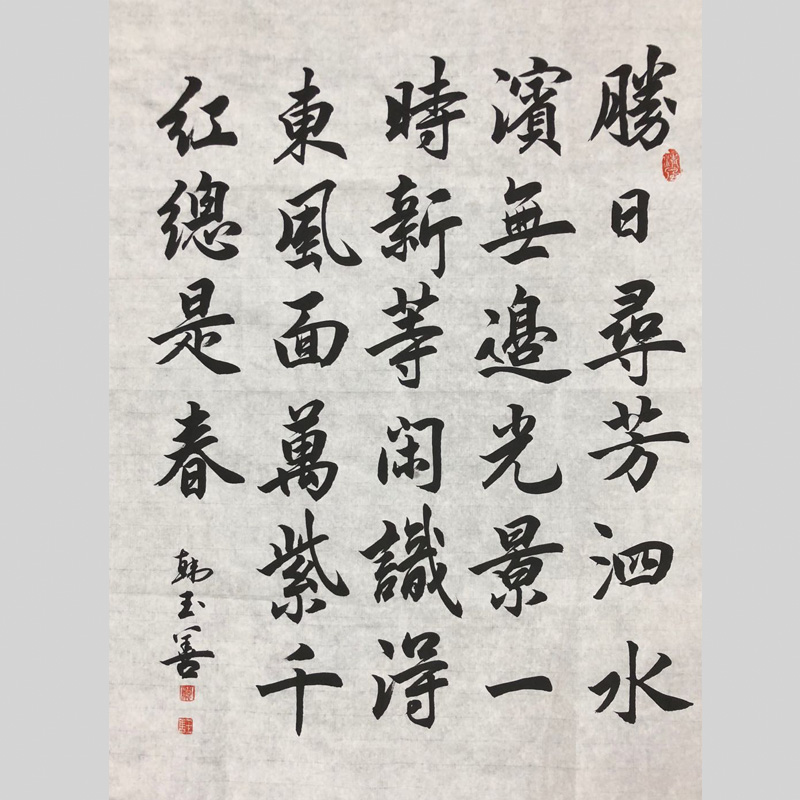 勝日尋芳泗水
濱無邊光景一
時新等閑識得
東風面萬紫千
紅總是春
韩玉善